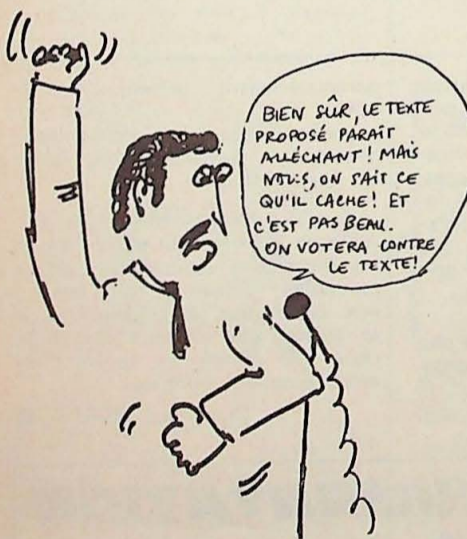 BIEN SÛR, LE TEXTE
PROPOSÉ PARAÎT
ALLÉCHANT ! MAIS
NOUS, ON SAIT CE
QU'IL CACHE ! ET
C'EST PAS BEAU.
ON VOTERA CONTRE
LE TEXTE !